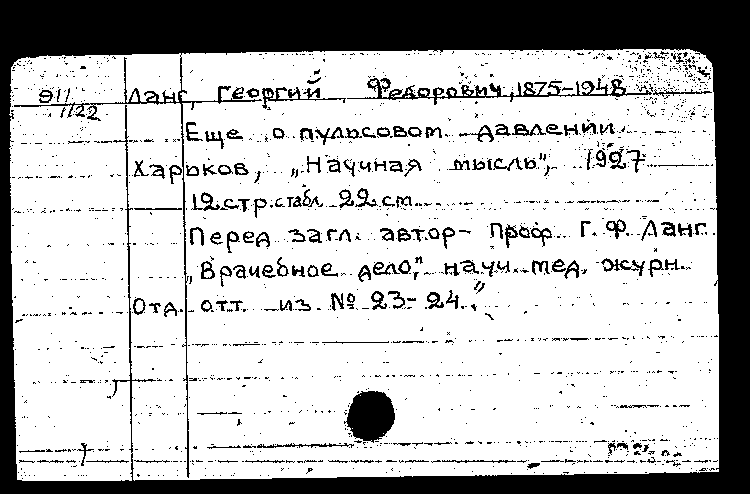 911/1122
Ланг, Георгий Федорович, 1875-1948
Еще о пульсовом давлении.
Харьков, „Научная мысль", 1927
12 стр. с табл. 22 см.
Перед загл. автор- Проф. Г. Ф. Ланг.
„Врачебное дело," науч. мед. журн.
Отд. отт. из № 23-24."